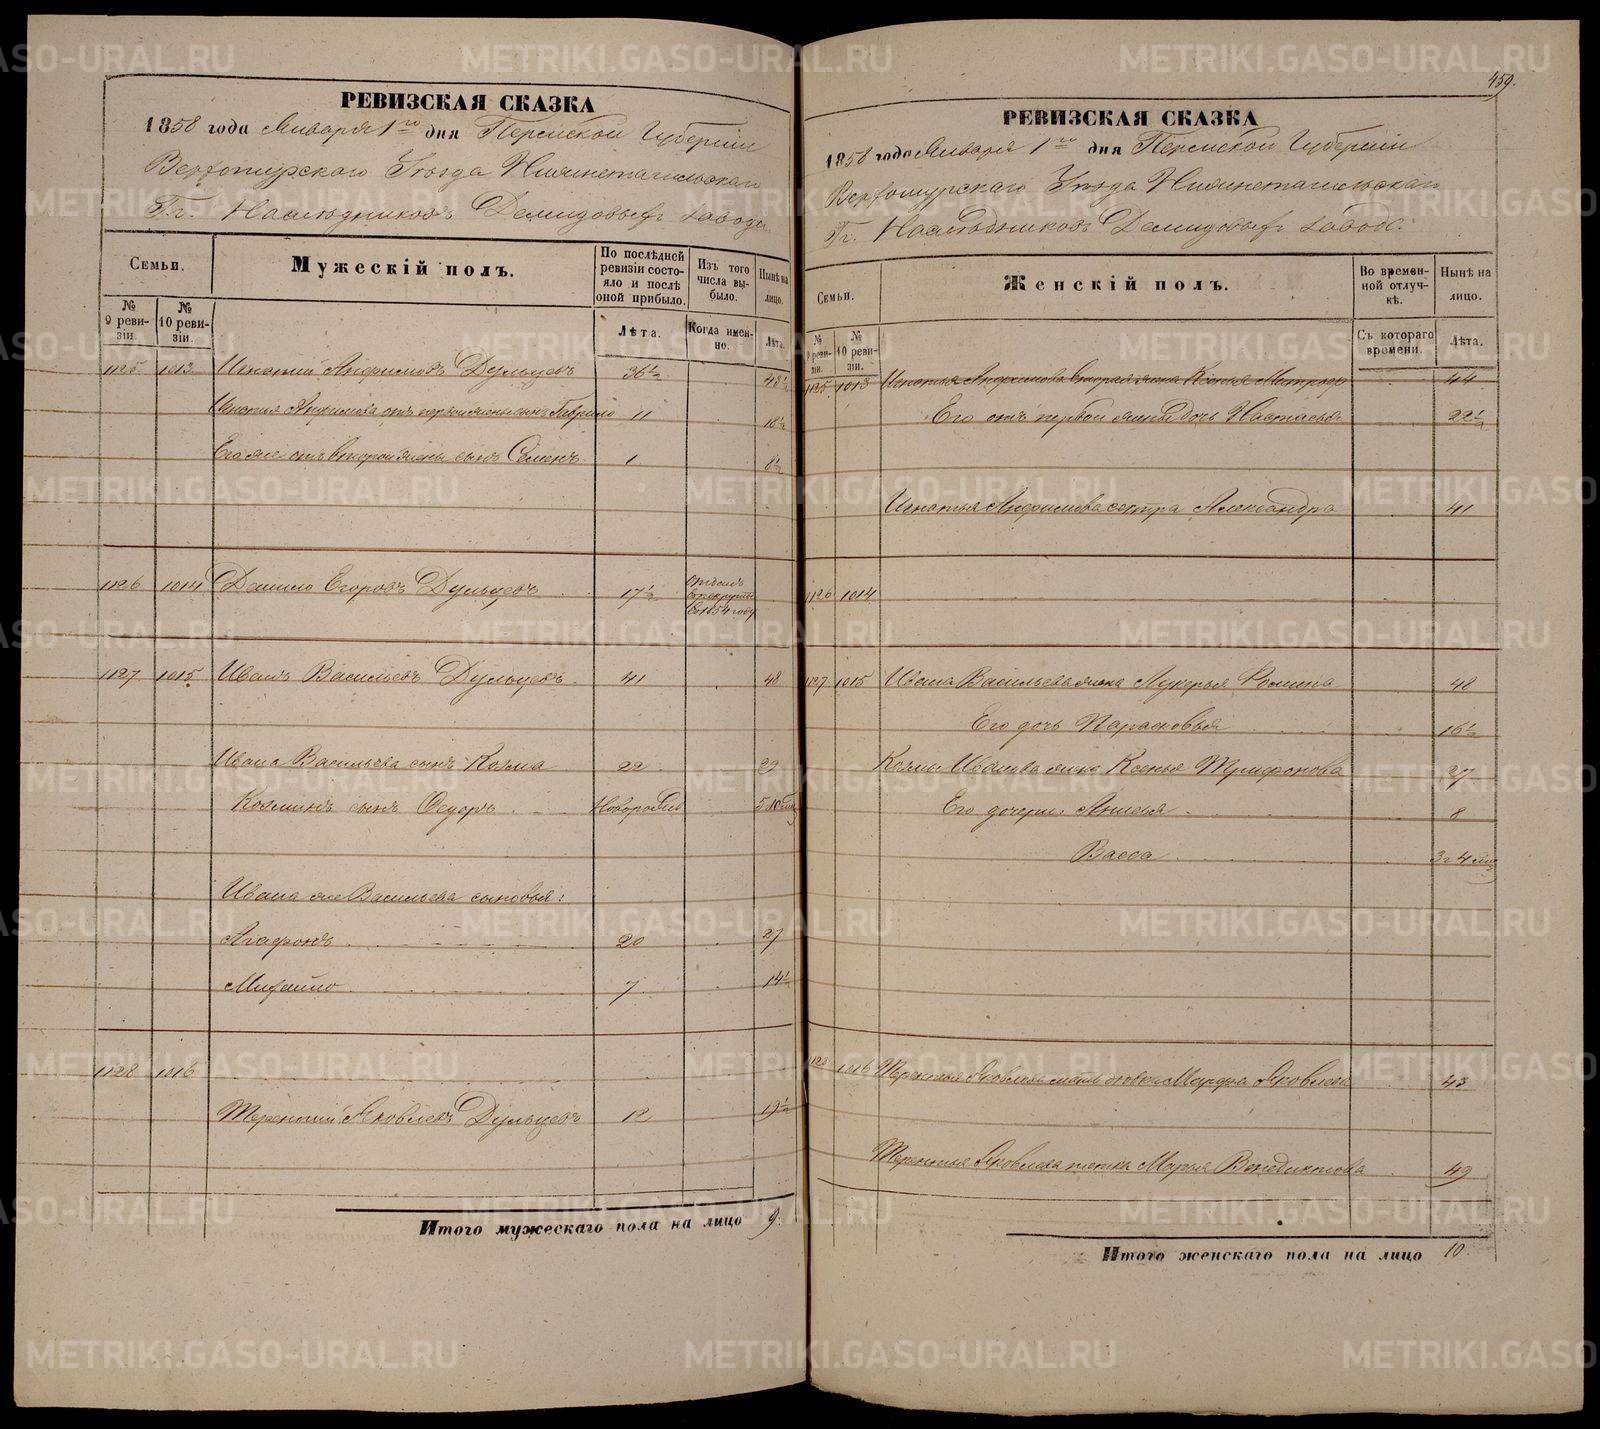 РЕВИЗСКАЯ СКАЗКА
1858 года Января 1го дня Пермской Губерніи
Верхотурскаго Уезда Нижнетагильскаго
Гг. Наследниковъ Демидовыхъ завода
Семьи.
Мужескій полъ.
По послѣдней ревизіи состояло и послѣ оной прибыло.
Изъ того числа выбыло.
Нынѣ на лицо.
№ 9 ревизіи.
№ 10 ревизіи.
Лѣта.
Когда именно.
Лѣта.
1125 1013 Игнатий Анфимовъ Дульцевъ 36½ 43½
Игнатия Анфимова отъ первой жены сынъ Гаврило 11 18½
Его же отъ второй жены сынъ Семенъ 1 8½
1126 1014 Данило Егоровъ Дульцевъ 17½ отданъ въ рекруты въ 1854 году
1127 1015 Иванъ Васильевъ Дульцевъ 41 48
Ивана Васильева сынъ Козма 22 29
Козминъ сынъ Федоръ Новорожд 5
Ивана же Васильева сыновья:
Агафонъ 20 27
Михайло 7 14½
1128 1016
Терентий Яковлевъ Дульцевъ 12 19½
Итого мужескаго пола на лицо 9.
459.
РЕВИЗСКАЯ СКАЗКА
1858 года Января 1го дня Пермской Губерніи
Верхотурскаго Уезда Нижнетагильскаго
Гг. Наследниковъ Демидовыхъ завода
Семьи.
Женскій полъ.
Во временной отлучкѣ.
Нынѣ на лицо.
№ 9 ревизіи.
№ 10 ревизіи.
Съ котораго времени.
Лѣта.
1125 1013 Игнатья Анфимова вторая жена Ксенья 44
Его отъ первой жены дочь Настасья 22½
Игнатья Анфимова сестра Александра 41
1126 1014
1127 1015 Ивана Васильева жена Лукерья Фомина 48
Его дочь Парасковья 16½
Козмы Иванова жена Ксенья Трифонова 27
Его дочери: Анисья 8
Васса 3 г 4
1128 1016 Терентья Яковлева мать вдова Марфа Яковлева 43
Терентья Яковлева тетка Марья Венедиктова 49
Итого женскаго пола на лицо 10.
METRIKI.GASO-URAL.RU